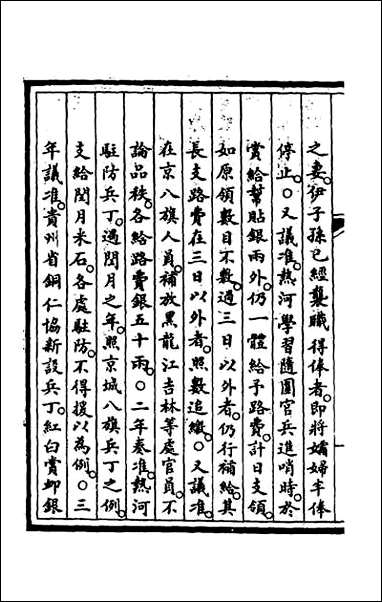 之妻。伊子孫已經襲職得俸者。即將孀婦半俸
停止。○又議准。熱河學習隨圍官兵進哨時。於
賞給幫貼銀兩外。仍一體給予路費。計日支領。
如原領數目不敷。過三日以外者。仍行補給。其
長支路費在三日以外者。照數追繳。○又議准。
在京八旗人員。補放黑龍江吉林等處官員。不
論品秩。各給路費銀五十兩。○二年奏准。熱河
駐防兵丁。遇閏月之年。照京城八旗兵丁之例。
支給閏月米石。各處駐防。不得援以為例。○三
年議准。貴州省銅仁協新設兵丁。紅白賞卹銀